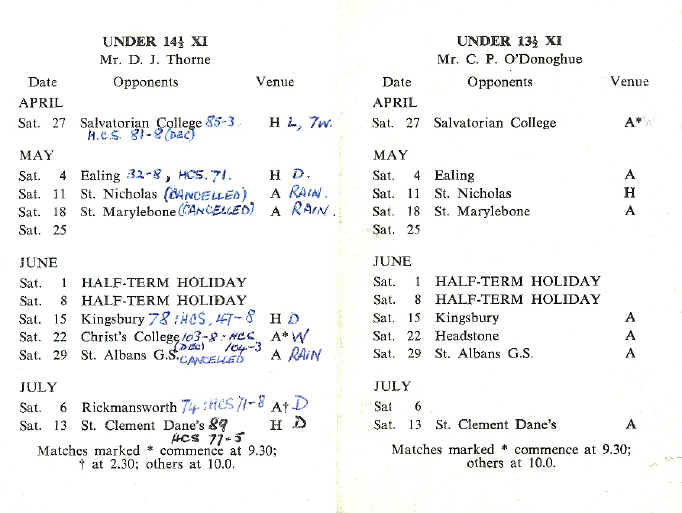 UNDER 14½ XI
Mr. D. J. Thorne
Date Opponents Venue
APRIL
Sat. 27 Salvatorian College 85-3. H L, 7w.
H.C.S. 81-8 (DEC)
MAY
Sat. 4 Ealing 32-8, HCS. 71. H D.
Sat. 11 St. Nicholas (CANCELLED) A RAIN.
Sat. 18 St. Marylebone (CANCELLED) A RAIN.
Sat. 25
JUNE
Sat. 1 HALF-TERM HOLIDAY
Sat. 8 HALF-TERM HOLIDAY
Sat. 15 Kingsbury 78 : HCS, 47-8 H D
Sat. 22 Christ's College 103-8 : HCS A* W
(DEC) 104-3
Sat. 29 St. Albans G.S. CANCELLED A RAIN
JULY
Sat. 6 Rickmansworth 74 : HCS 71-8 A† D
Sat. 13 St. Clement Dane's 89 H D
HCS 77-5
Matches marked * commence at 9.30;
† at 2.30; others at 10.0.
UNDER 13½ XI
Mr. C. P. O'Donoghue
Date Opponents Venue
APRIL
Sat. 27 Salvatorian College A*
MAY
Sat. 4 Ealing A
Sat. 11 St. Nicholas H
Sat. 18 St. Marylebone A
Sat. 25
JUNE
Sat. 1 HALF-TERM HOLIDAY
Sat. 8 HALF-TERM HOLIDAY
Sat. 15 Kingsbury A
Sat. 22 Headstone A
Sat. 29 St. Albans G.S. A
JULY
Sat 6
Sat. 13 St. Clement Dane's A
Matches marked * commence at 9.30;
others at 10.0.